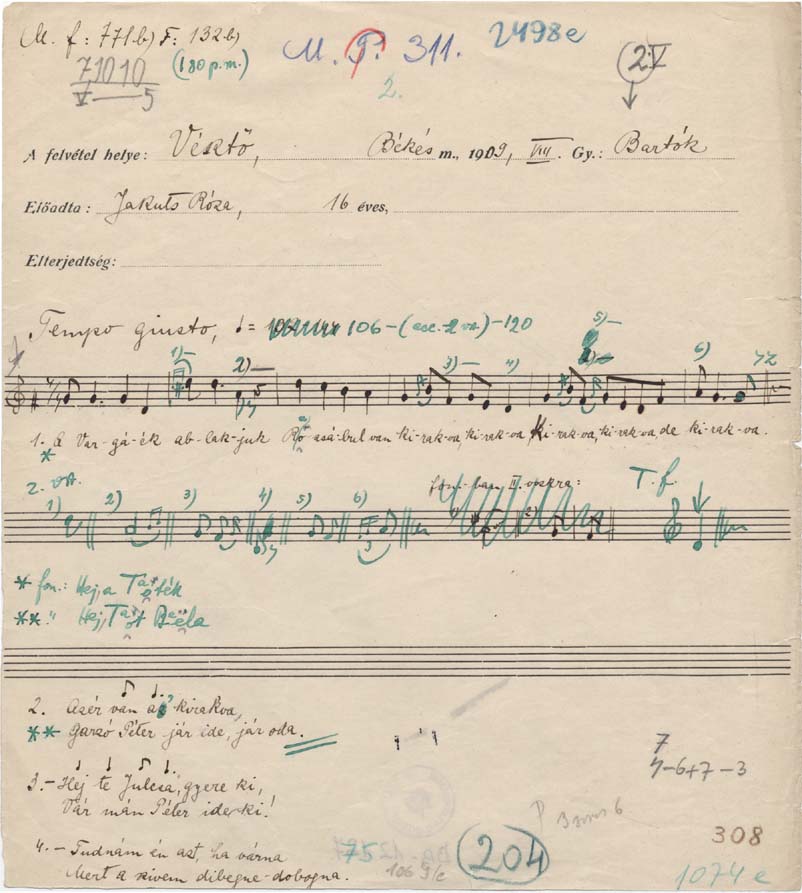 M. f: 771.b) F: 132.b)
71010 (180 p.m.) M. P. 311. 2498e
V—5 2. 2.V
A felvétel helye: Vésztő, Békés m., 1909, VIII. Gy.: Bartók
Előadta: Jakuts Róza, 16 éves,
Elterjedtség:
Tempo giusto, = 106-(asc. 2 va)-120
1)— 2)— 3)— 4) 5)— 6)
1. A Var-gá-ék ab-lak-juk Ró asá-bul van ki-rak-va, ki-rak-va, Ki-rak-va, ki-rak-va, de ki-rak-va.
*
2. va. T. f.
1) 2) 3) 4) 5) 6)
* fon.: Hej, a Tóték
** " Hej, Tót Béla
2. Azér van az kirakva,
** Garzó Péter jár ide, jár oda.
3.- Hej te Julcsa, gyere ki,
Vár mán Péter ide ki!
7
7-6+7-3
4. - Tudnám én azt, ha várna
Mert a szivem dibegne-dobogna.
204
308
1074e